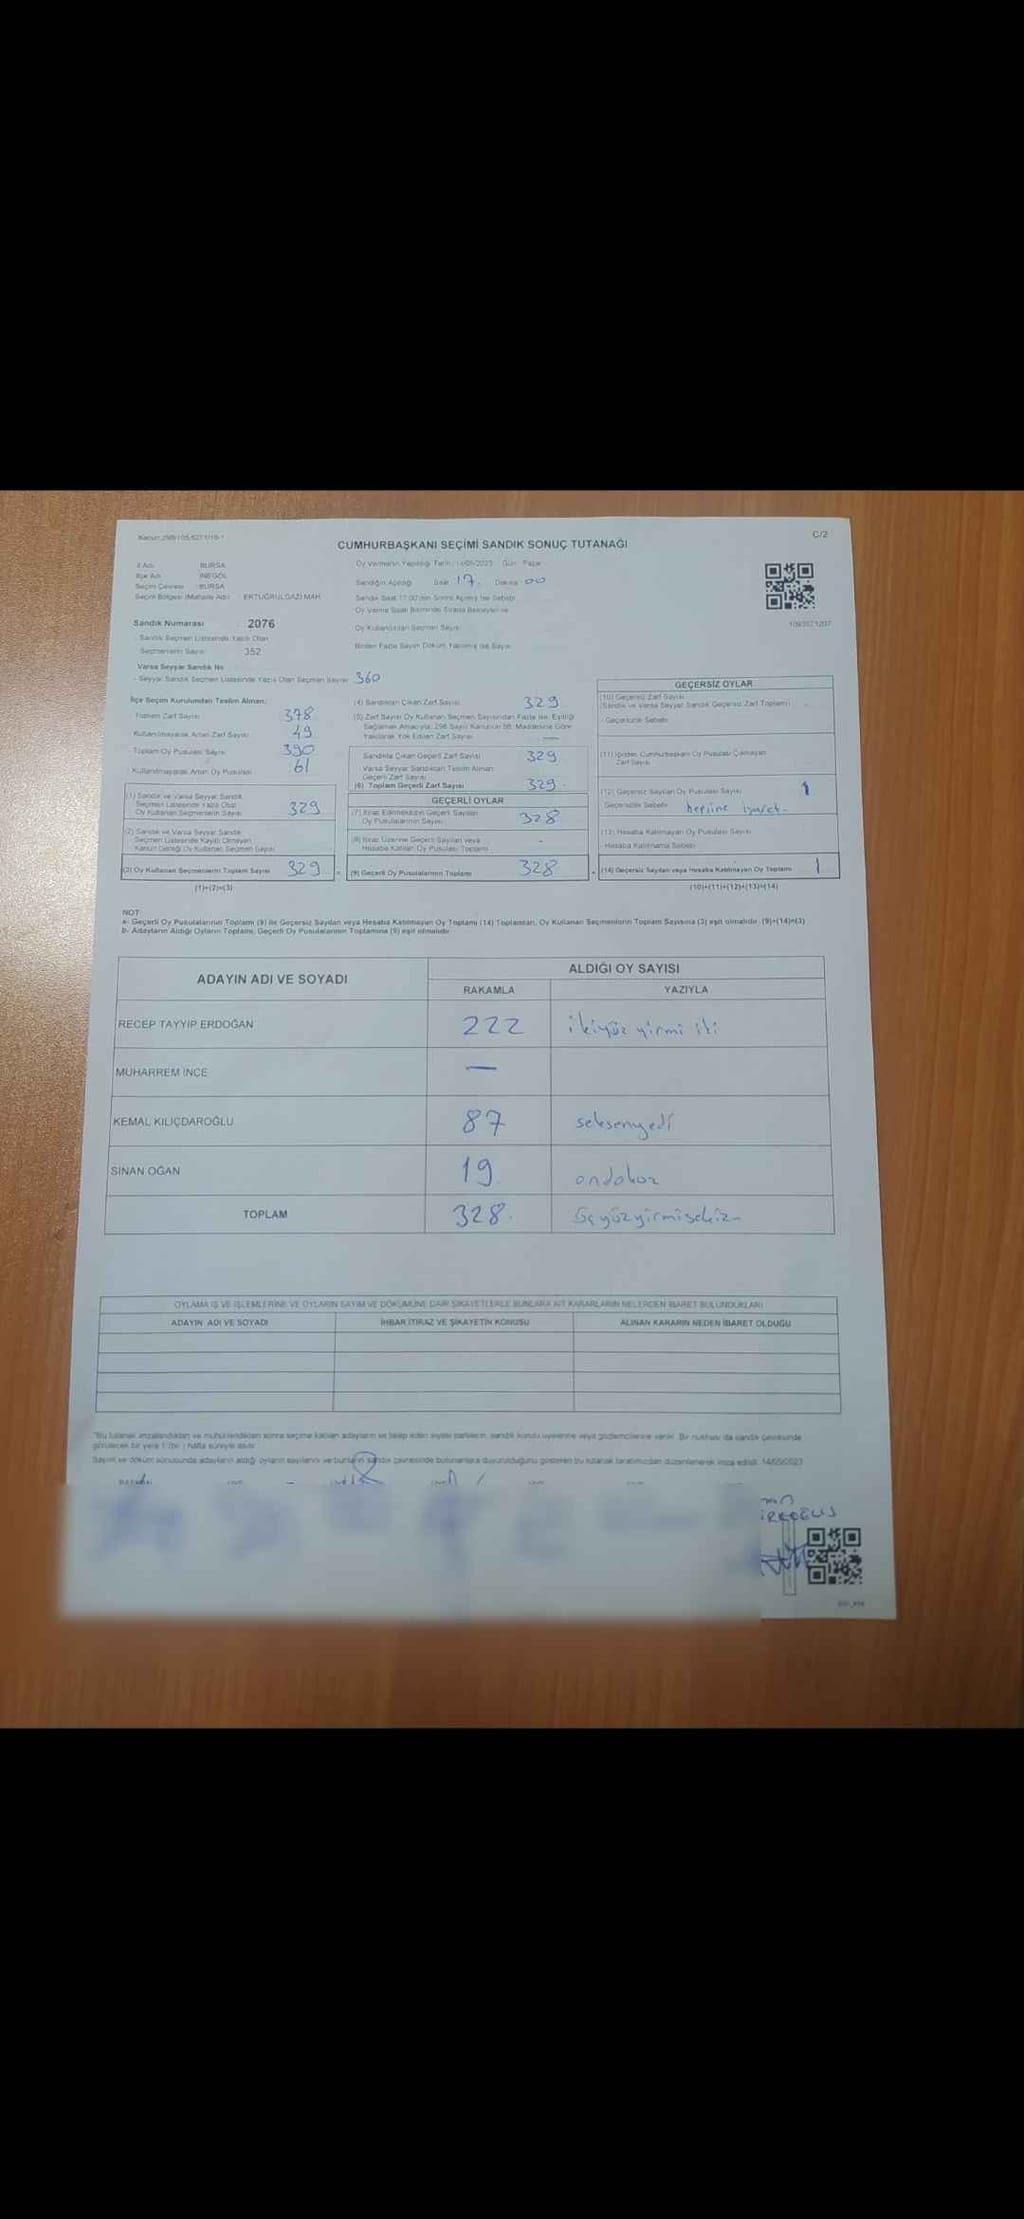 C/2
CUMHURBAŞKANI SEÇİMİ SANDIK SONUÇ TUTANAĞI
İl Adı BURSA
İlçe Adı İNEGÖL
Seçim Çevresi BURSA
Seçim Bölgesi (Mahalle Adı) ERTUĞRULGAZİ MAH
Oy Vermenin Yapıldığı Tarih: 14/05/2023 Gün: Pazar
Sandığın Açıldığı Saat 17 Dakika 00
Sandık Saat 17:00'den Sonra Açılmış İse Sebebi
Oy Kullandırılan Seçmen Sayısı
Birden Fazla Sayım Döküm Yapılmış İse Sayısı
Sandık Numarası 2076
Sandık Seçmen Listesinde Yazılı Olan
Seçmenlerin Sayısı 352
Varsa Seyyar Sandık No
- Seyyar Sandık Seçmen Listesinde Yazılı Olan Seçmen Sayısı 360
İlçe Seçim Kurulundan Teslim Alınan:
Toplam Zarf Sayısı 378
Kullanılmayarak Artan Zarf Sayısı 49
Toplam Oy Pusulası Sayısı 390
Kullanılmayarak Artan Oy Pusulası 61
(1) Sandık ve Varsa Seyyar Sandık
Seçmen Listesinde Yazılı Olup
Oy Kullanan Seçmenlerin Sayısı 329
(2) Sandık ve Varsa Seyyar Sandık
Seçmen Listesinde Kayıtlı Olmayan
Kanun Gereği Oy Kullanan Seçmen Sayısı
(3) Oy Kullanan Seçmenlerin Toplam Sayısı 329
(1)+(2)=(3)
(4) Sandıktan Çıkan Zarf Sayısı 329
(5) Zarf Sayısı Oy Kullanan Seçmen Sayısından Fazla İse, Eşitliği
Sağlamak Amacıyla, 298 Sayılı Kanunun 98. Maddesine Göre
Yakılarak Yok Edilen Zarf Sayısı —
Sandıkta Çıkan Geçerli Zarf Sayısı 329
Varsa Seyyar Sandıktan Teslim Alınan
Geçerli Zarf Sayısı
(6) Toplam Geçerli Zarf Sayısı 329
GEÇERLİ OYLAR
(7) İtiraz Edilmeksizin Geçerli Sayılan
Oy Pusulalarının Sayısı 328
(8) İtiraz Üzerine Geçerli Sayılan veya
Hesaba Katılan Oy Pusulası Toplamı -
(9) Geçerli Oy Pusulalarının Toplamı 328
GEÇERSİZ OYLAR
(10) Geçersiz Zarf Sayısı
(Sandık ve Varsa Seyyar Sandık Geçersiz Zarf Toplamı)
- Geçersizlik Sebebi
(11) İçinden Cumhurbaşkanı Oy Pusulası Çıkmayan
Zarf Sayısı
(12) Geçersiz Sayılan Oy Pusulası Sayısı 1
Geçersizlik Sebebi hepsine işaret
(13) Hesaba Katılmayan Oy Pusulası Sayısı
Hesaba Katılmama Sebebi
(14) Geçersiz Sayılan veya Hesaba Katılmayan Oy Toplamı 1
(10)+(11)+(12)+(13)=(14)
NOT:
a- Geçerli Oy Pusulalarının Toplamı (9) ile Geçersiz Sayılan veya Hesaba Katılmayan Oy Toplamı (14) Toplamları, Oy Kullanan Seçmenlerin Toplam Sayısına (3) eşit olmalıdır. (9)+(14)=(3)
b- Adayların Aldığı Oyların Toplamı, Geçerli Oy Pusulalarının Toplamına (9) eşit olmalıdır.
ADAYIN ADI VE SOYADI ALDIĞI OY SAYISI
RAKAMLA YAZIYLA
RECEP TAYYİP ERDOĞAN 222 ikiyüz yirmi iki
MUHARREM İNCE —
KEMAL KILIÇDAROĞLU 87 seksenyedi
SİNAN OĞAN 19 ondokuz
TOPLAM 328 üçyüzyirmisekiz
OYLAMA İŞ VE İŞLEMLERİNE VE OYLARIN SAYIM VE DÖKÜMÜNE DAİR ŞİKAYETLERLE BUNLARA AİT KARARLARIN NELERDEN İBARET BULUNDUKLARI
ADAYIN ADI VE SOYADI İHBAR İTİRAZ VE ŞİKAYETİN KONUSU ALINAN KARARIN NEDEN İBARET OLDUĞU
*Bu tutanak imzalandıktan ve mühürlendikten sonra seçime katılan adayların ve talep eden siyasi partilerin, sandık kurulu üyelerine veya gözlemcilerine verilir. Bir nüshası da sandık çevresinde
görülecek bir yere 1 (bir) hafta süreyle asılır.
Sayım ve döküm sonucunda adayların aldığı oyların sayılarını ve bunların sandık çevresinde bulunanlara duyurulduğunu gösteren bu tutanak tarafımızdan düzenlenerek imza edildi. 14/05/2023